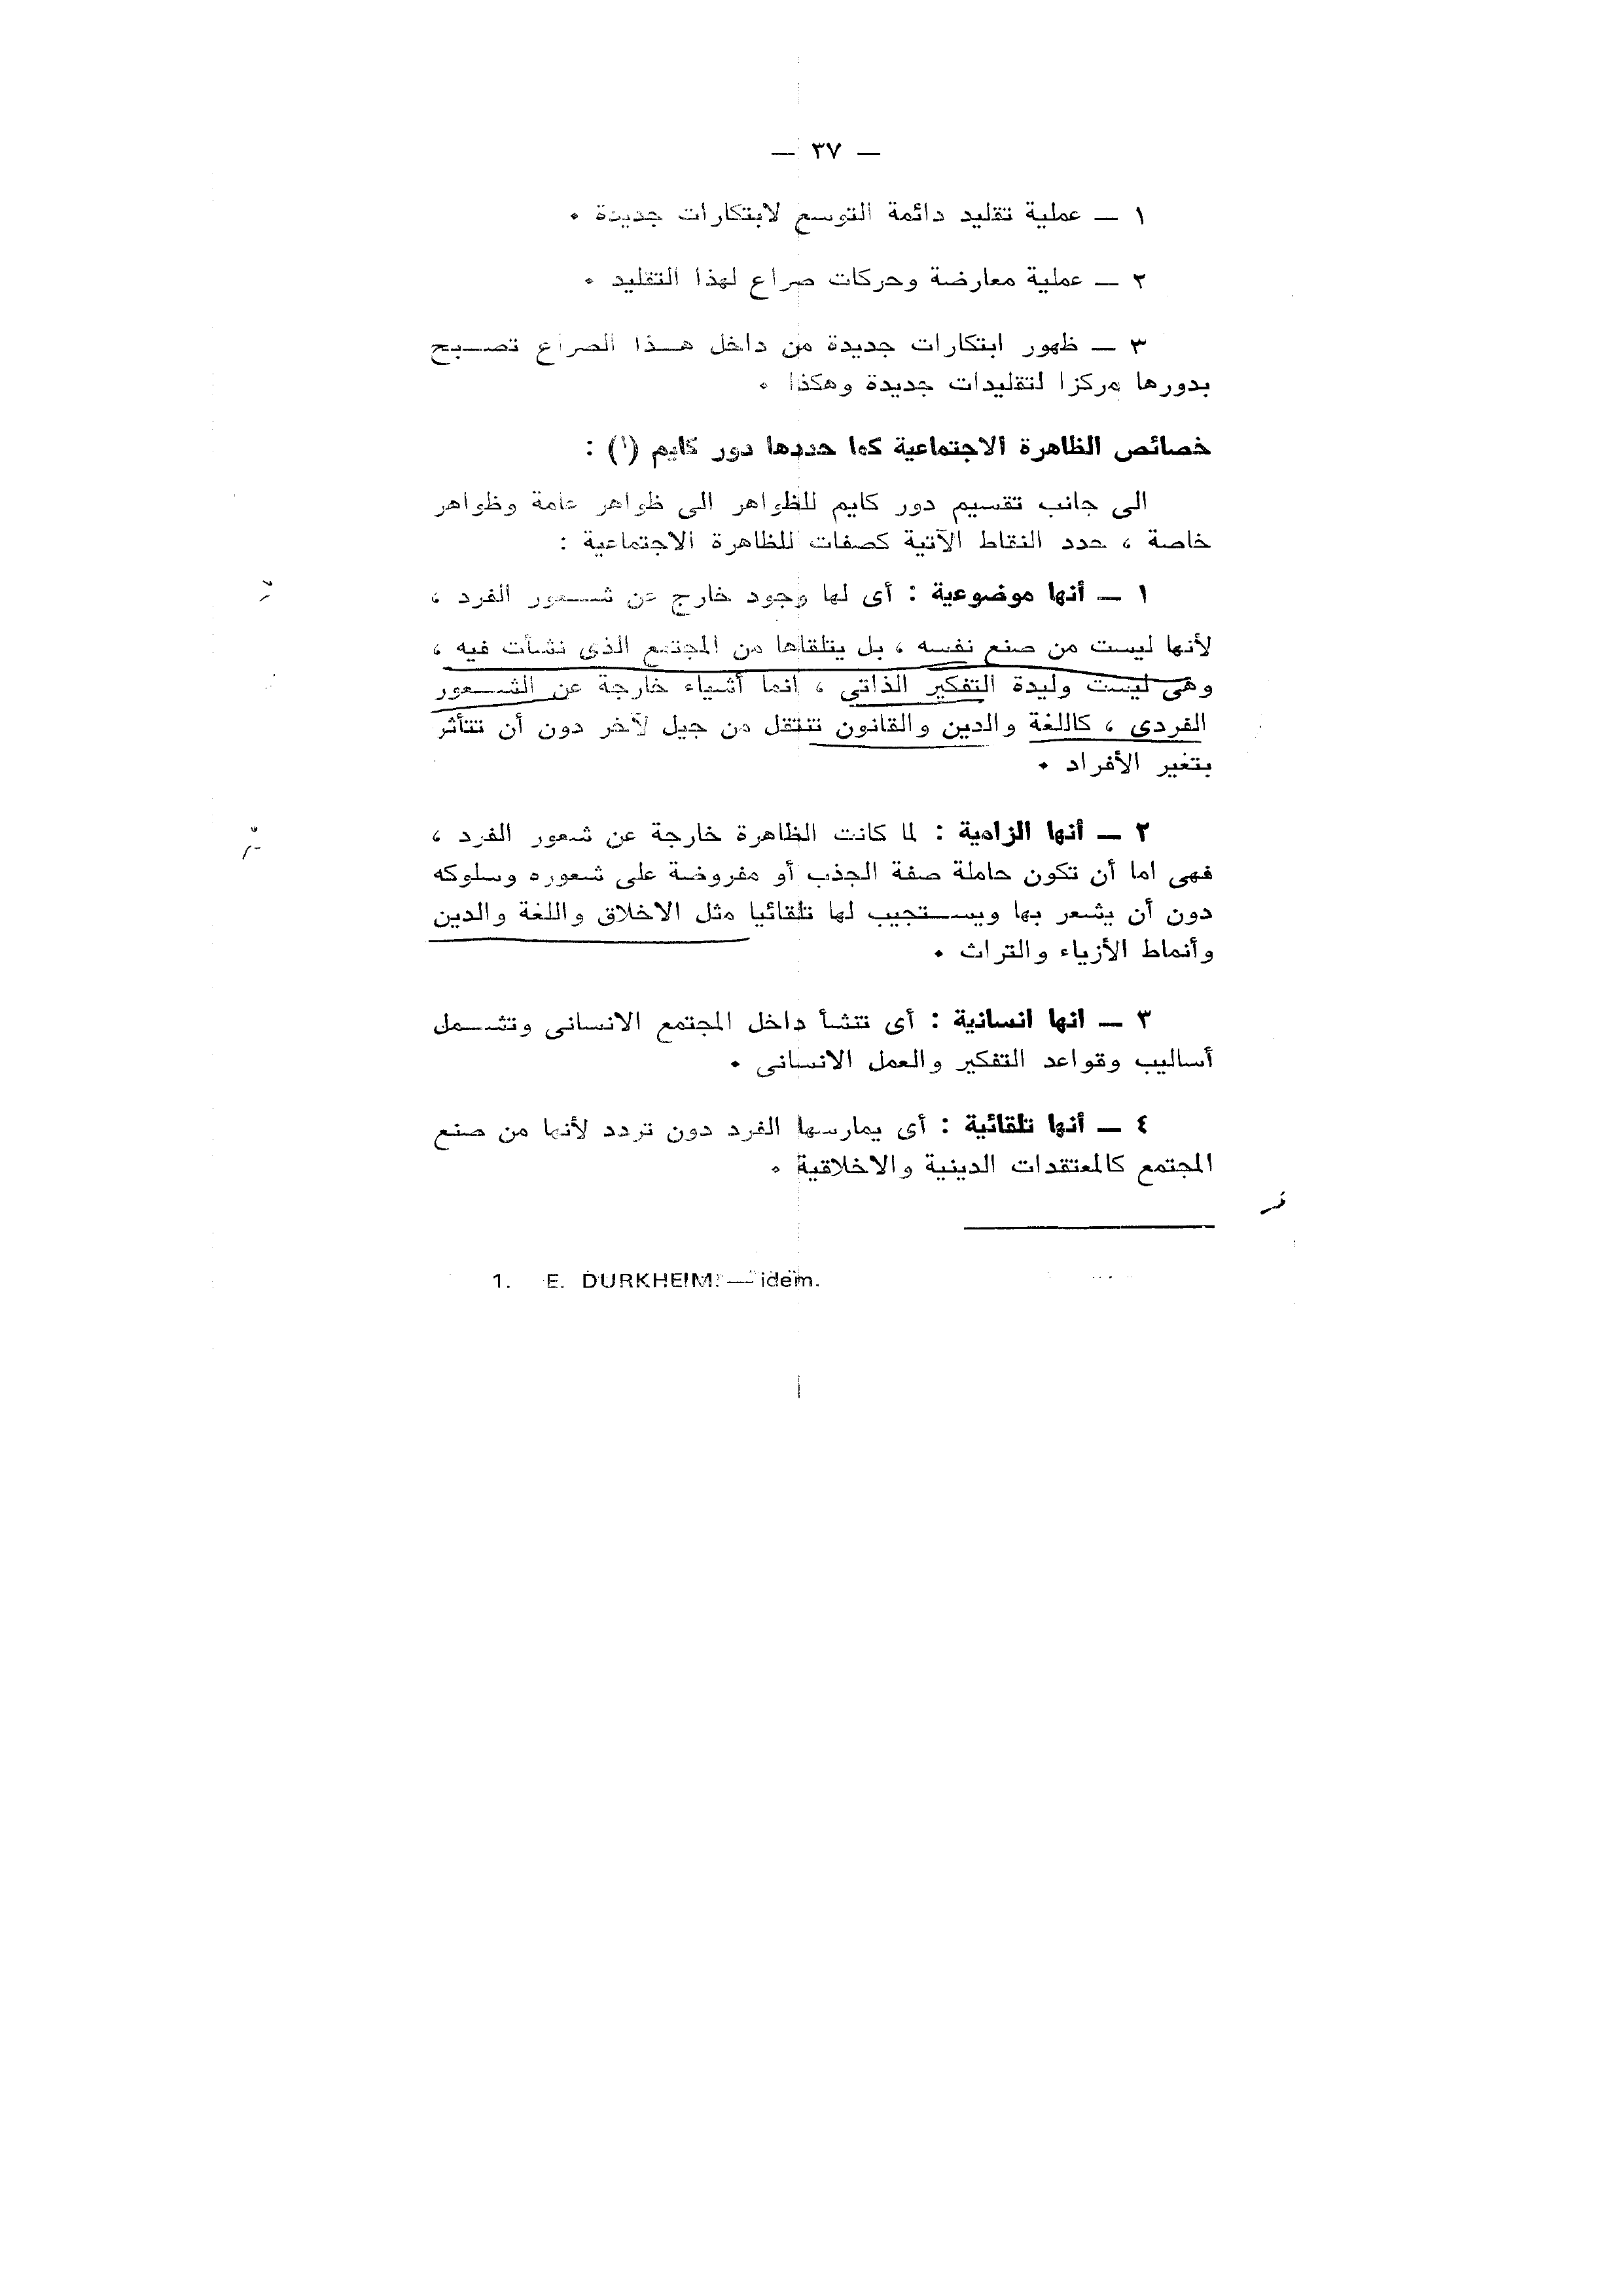 — ٣٧ —
١ — عملية تقليد دائمة التوسع لابتكارات جديدة .
٢ — عملية معارضة وحركات صراع لهذا التقليد .
٣ — ظهور ابتكارات جديدة من داخل هذا الصراع تصبح
بدورها مركزا لتقليدات جديدة وهكذا .
خصائص الظاهرة الاجتماعية كما حددها دور كايم (١) :
الى جانب تقسيم دور كايم للظواهر الى ظواهر عامة وظواهر
خاصة ، حدد النقاط الآتية كصفات للظاهرة الاجتماعية :
١ — أنها موضوعية : أى لها وجود خارج عن شعور الفرد ،
لأنها ليست من صنع نفسه ، بل يتلقاها من المجتمع الذى نشأت فيه ،
وهى ليست وليدة التفكير الذاتي ، انما أشياء خارجة عن الشعور
الفردى ، كاللغة والدين والقانون تنتقل من جيل لآخر دون أن تتأثر
بتغير الأفراد .
٢ — أنها الزامية : لما كانت الظاهرة خارجة عن شعور الفرد ،
فهى اما أن تكون حاملة صفة الجذب أو مفروضة على شعوره وسلوكه
دون أن يشعر بها ويستجيب لها تلقائيا مثل الاخلاق واللغة والدين
وأنماط الأزياء والتراث .
٣ — انها انسانية : أى تنشأ داخل المجتمع الانسانى وتشمل
أساليب وقواعد التفكير والعمل الانسانى .
٤ — أنها تلقائية : أى يمارسها الفرد دون تردد لأنها من صنع
المجتمع كالمعتقدات الدينية والاخلاقية .
1. E. DURKHEIM. — idem.